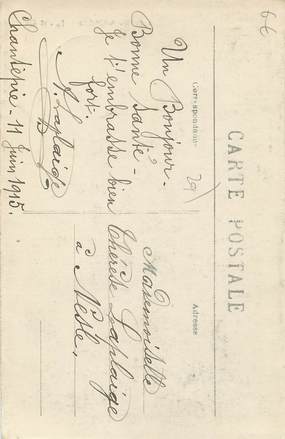 CARTE POSTALE
Correspondance
Adresse
6€
29
Un Bonjour.
Bonne Santé.
Je t'embrasse bien
fort.
A. Laplaige
Chantepie - 11 Juin 1915.
Mademoiselle
Thérèse Laplaige
à Nesle.